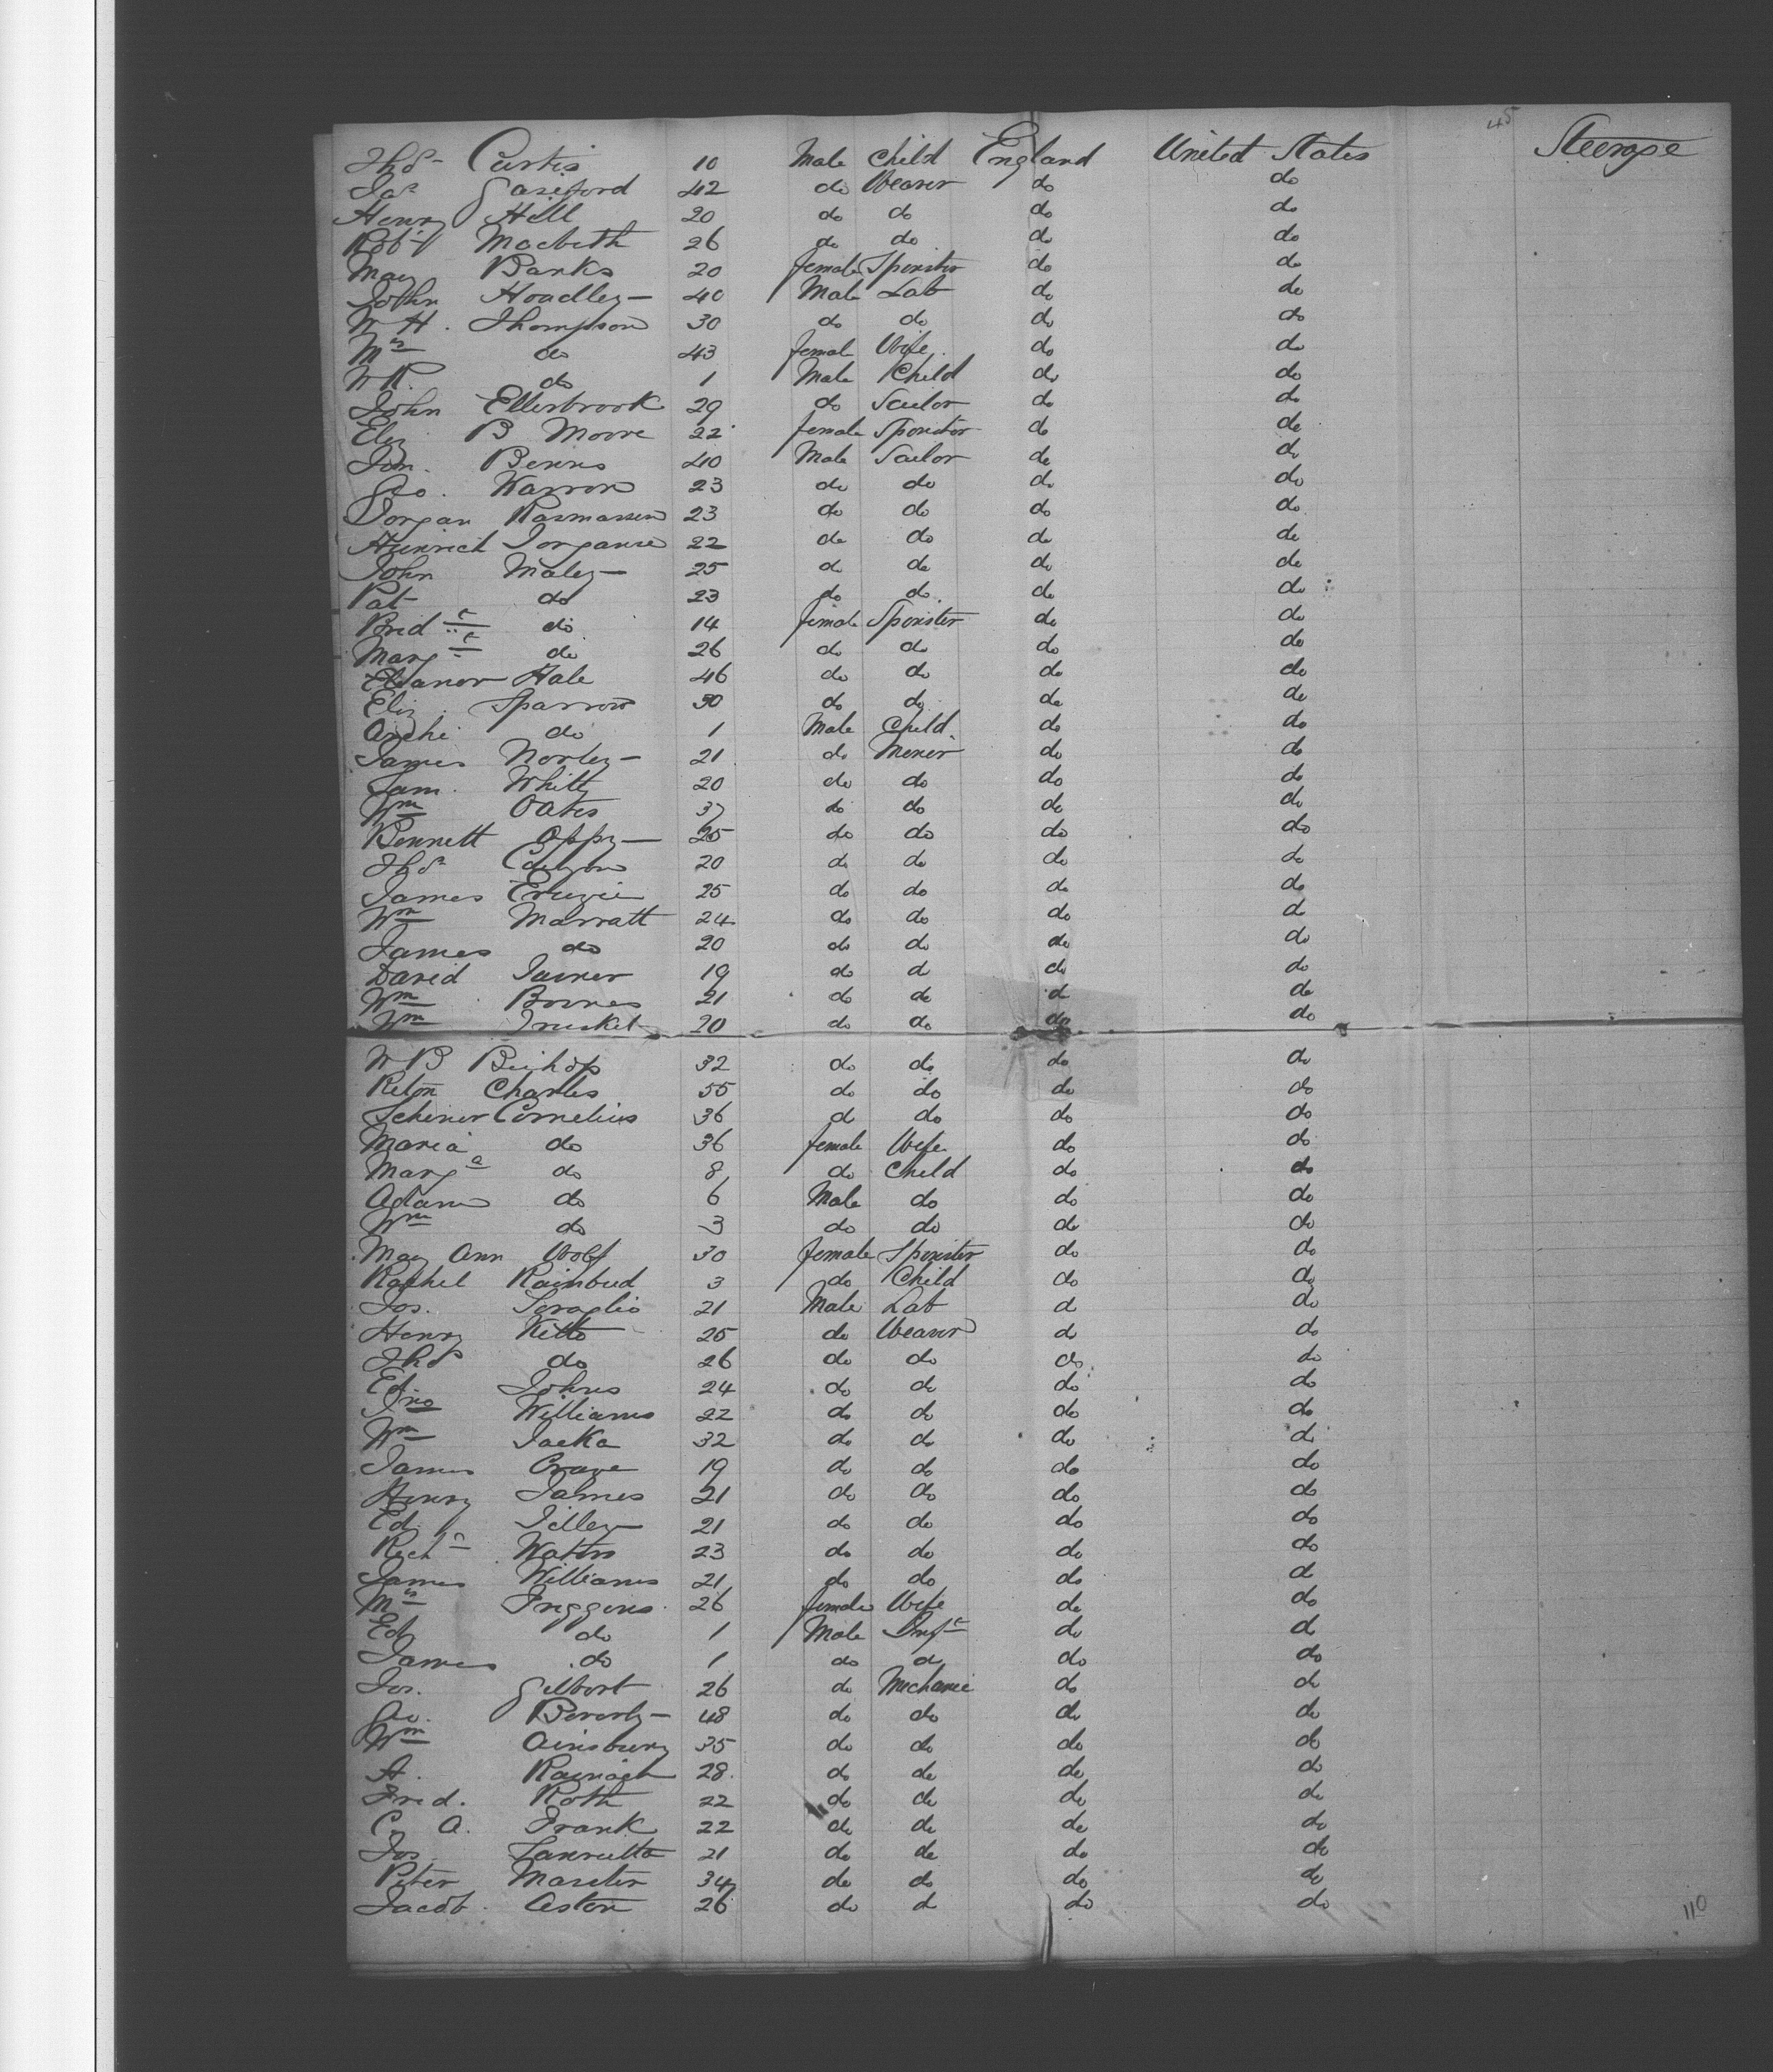 45
Thos Curtis 10 Male Child England United States Steerage
Jas Gaseford 42 do Weaver do do
Henry Hill 20 do do do do
Robt Macbeth 26 do do do do
May Banks 20 female Spinster do do
John Hoadley 40 Male Lab do do
W H. Thompson 30 do do do do
Mrs do 43 female Wife do do
W R. do 1 Male Child do do
John Ellerbrook 29 do Sailor do do
Eliz B Moore 22 female Spinster do do
Jon. Benns 40 Male Sailor do do
Geo. Warron 23 do do do do
Jorgan Rasmassen 23 do do do do
Heinrich Jorganse 22 do do do do
John Maley 25 do do do do
Pat do 23 do do do do
Bridt do 14 female Spinster do do
Margt do 26 do do do do
Eleanor Hale 46 do do do do
Eliz Sparrow 30 do do do do
Archi do 1 Male Child do do
James Norley 21 do Miner do do
Sam. Whitty 20 do do do do
Wm Oates 37 do do do do
Bennett Oppy 25 do do do do
Thos 20 do do do do
James 25 do do do do
Wm Marratt 24 do do do do
James do 20 do do do do
David 19 do do do do
Wm 21 do do do do
Wm Truskel 20 do do do do
W B Bishop 32 do do do do
Charles 55 do do do do
Cornelius 36 do do do do
Maria do 36 female Wife do do
Marga do 8 do Child do do
Adam do 6 Male do do do
Wm do 3 do do do do
May Ann Wolf 30 female Spinster do do
Rachel Rainbud 3 do Child do do
Jos. 21 Male Lab do do
Henry Kitto 25 do Weaver do do
Thos do 26 do do do do
Ed Johns 24 do do do do
Jno Williams 22 do do do do
Wm Jacka 32 do do do do
James Craze 19 do do do do
Henry James 21 do do do do
Ed. Tilley 21 do do do do
Richd Waters 23 do do do do
James Williams 21 do do do do
Mrs Friggens 26 female Wife do do
Ed do 1 Male Inft do do
James do 1 do do do do
Jos. Gilbert 26 do Mechanic do do
Beverly 48 do do do do
Wm Ainsbury 35 do do do do
A. 28 do do do do
Fred. Roth 22 do do do do
C. A. Frank 22 do do do do
Jos 21 do do do do
Peter 34 do do do do
Jacob Aston 26 do do do do
110